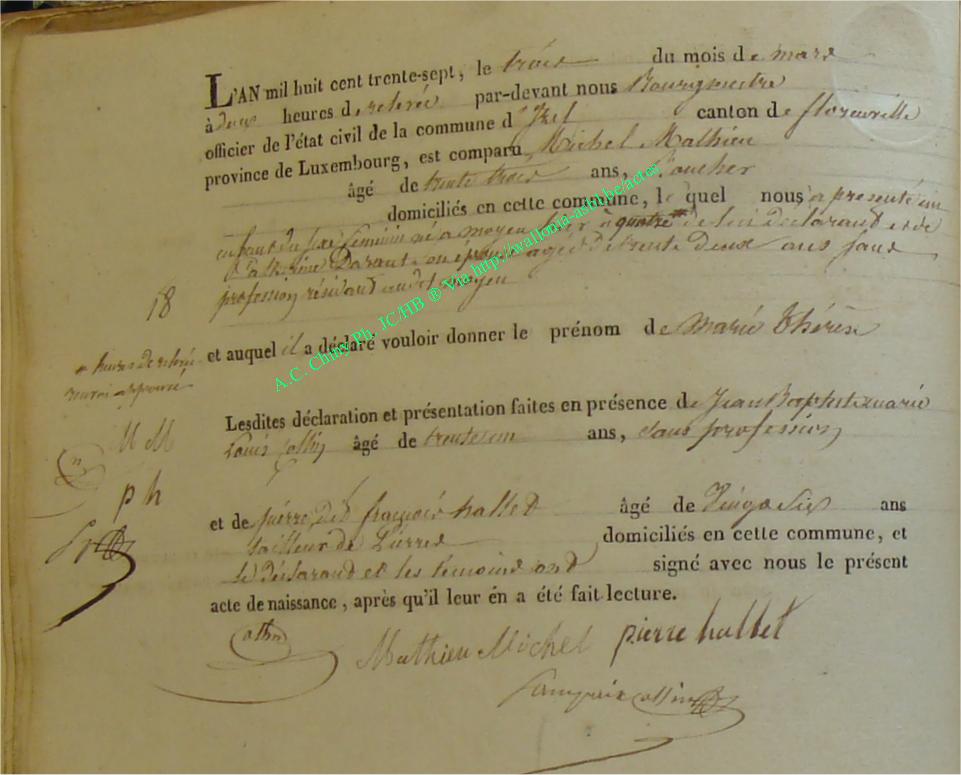 L'AN mil huit cent trente-sept, le trois du mois de mars
à deux heures de relevée par-devant nous Bourgmestre
officier de l'état civil de la commune d'Izel canton de florenville
province de Luxembourg, est comparu Michel Mathieu
âgé de trente trois ans,
domiciliés en cette commune, le quel nous a présenté un
enfant du sexe feminin né a moyen hier à quatre * de lui déclarant et de
Catherine son épouse agée de trente deux ans sans
profession résidant audit moyen
18
et auquel il a déclaré vouloir donner le prénom de Marie Thérèse
* heures de relevée
renvoi approuvé
Lesdites déclaration et présentation faites en présence de Jean Baptiste marie
Louis âgé de trente un ans, sans profession
M M
p h
et de pierre françois hallet âgé de vingt six ans
tailleur de pierres domiciliés en cette commune, et
le déclarant et les temoins ont signé avec nous le présent
acte de naissance, après qu'il leur én a été fait lecture.
Mathieu Michel pierre hallet
A.C. Chiny Ph. JC/HB ® Via http://wallonia-asbl.be/actor